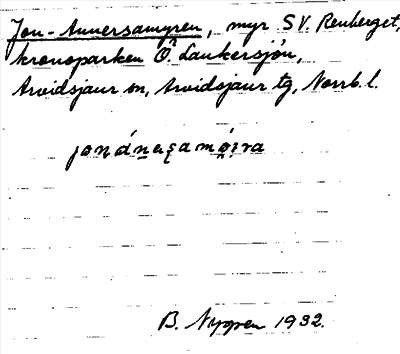 Jon-Annersamyren, myr S V. Renberget,
kronoparken Ö. Laukersjön,
Arvidsjaur sn, Arvidsjaur tg, Norrb. l.
jonánaşamǫ́ıra
B. Nygren 1932.